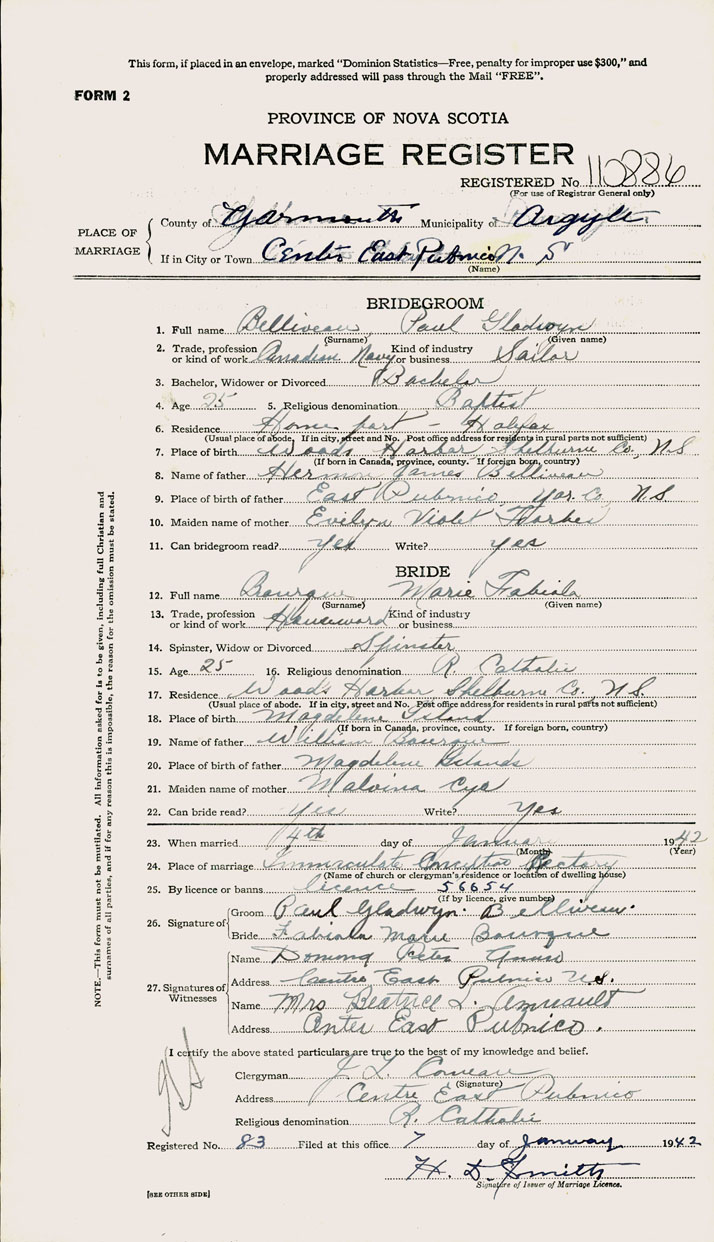 This form, if placed in an envelope, marked "Dominion Statistics—Free, penalty for improper use $300," and
properly addressed will pass through the Mail "FREE".
FORM 2
PROVINCE OF NOVA SCOTIA
MARRIAGE REGISTER
REGISTERED No. 110886
(For use of Registrar General only)
PLACE OF MARRIAGE
County of Yarmouth Municipality of Argyle
If in City or Town Centre East Pubnico N. S
(Name)
BRIDEGROOM
1. Full name Belliveau, Paul Gladwyn
(Surname) (Given name)
2. Trade, profession or kind of work Canadian Navy Kind of industry or business Sailor
3. Bachelor, Widower or Divorced Bachelor
4. Age 25 5. Religious denomination Baptist
6. Residence Home port - Halifax
(Usual place of abode. If in city, street and No. Post office address for residents in rural parts not sufficient)
7. Place of birth Woods Harbor Shelburne Co, N.S
(If born in Canada, province, county. If foreign born, country)
8. Name of father Hermon James Belliveau
9. Place of birth of father East Pubnico, Yar. Co. N.S
10. Maiden name of mother Evelyn Violet Forbes
11. Can bridegroom read? yes Write? yes
BRIDE
12. Full name Bourque Marie Fabiola
(Surname) (Given name)
13. Trade, profession or kind of work Kind of industry or business
14. Spinster, Widow or Divorced Spinster
15. Age 25 16. Religious denomination R. Catholic
17. Residence Woods Harbor Shelburne Co., N.S.
(Usual place of abode. If in city, street and No. Post office address for residents in rural parts not sufficient)
18. Place of birth Magdelene Island
(If born in Canada, province, county. If foreign born, country)
19. Name of father William Bourque
20. Place of birth of father Magdelene Islands
21. Maiden name of mother Malvina Cyr
22. Can bride read? Yes Write? Yes
23. When married 4th day of January 1942
(Month) (Year)
24. Place of marriage Immaculate Conception Rectory
(Name of church or clergyman's residence or location of dwelling house)
25. By licence or banns licence 56654
(If by licence, give number)
26. Signature of
Groom Paul Gladwyn Belliveau.
Bride Fabiola Marie Bourque
27. Signatures of Witnesses
Name Peter
Address Centre East Pubnico N.S.
Name Mrs Beatrice L. Amirault
Address Center East Pubnico.
I certify the above stated particulars are true to the best of my knowledge and belief.
Clergyman J. L. Comeau
(Signature)
Address Centre East Pubnico
Religious denomination R. Catholic
Registered No. 83 Filed at this office 7 day of January 1942
H. D. Smith
Signature of Issuer of Marriage Licence.
[SEE OTHER SIDE]
NOTE.—This form must not be mutilated. All information asked for is to be given, including full Christian and
surnames of all parties, and if for any reason this is impossible, the reason for the omission must be stated.